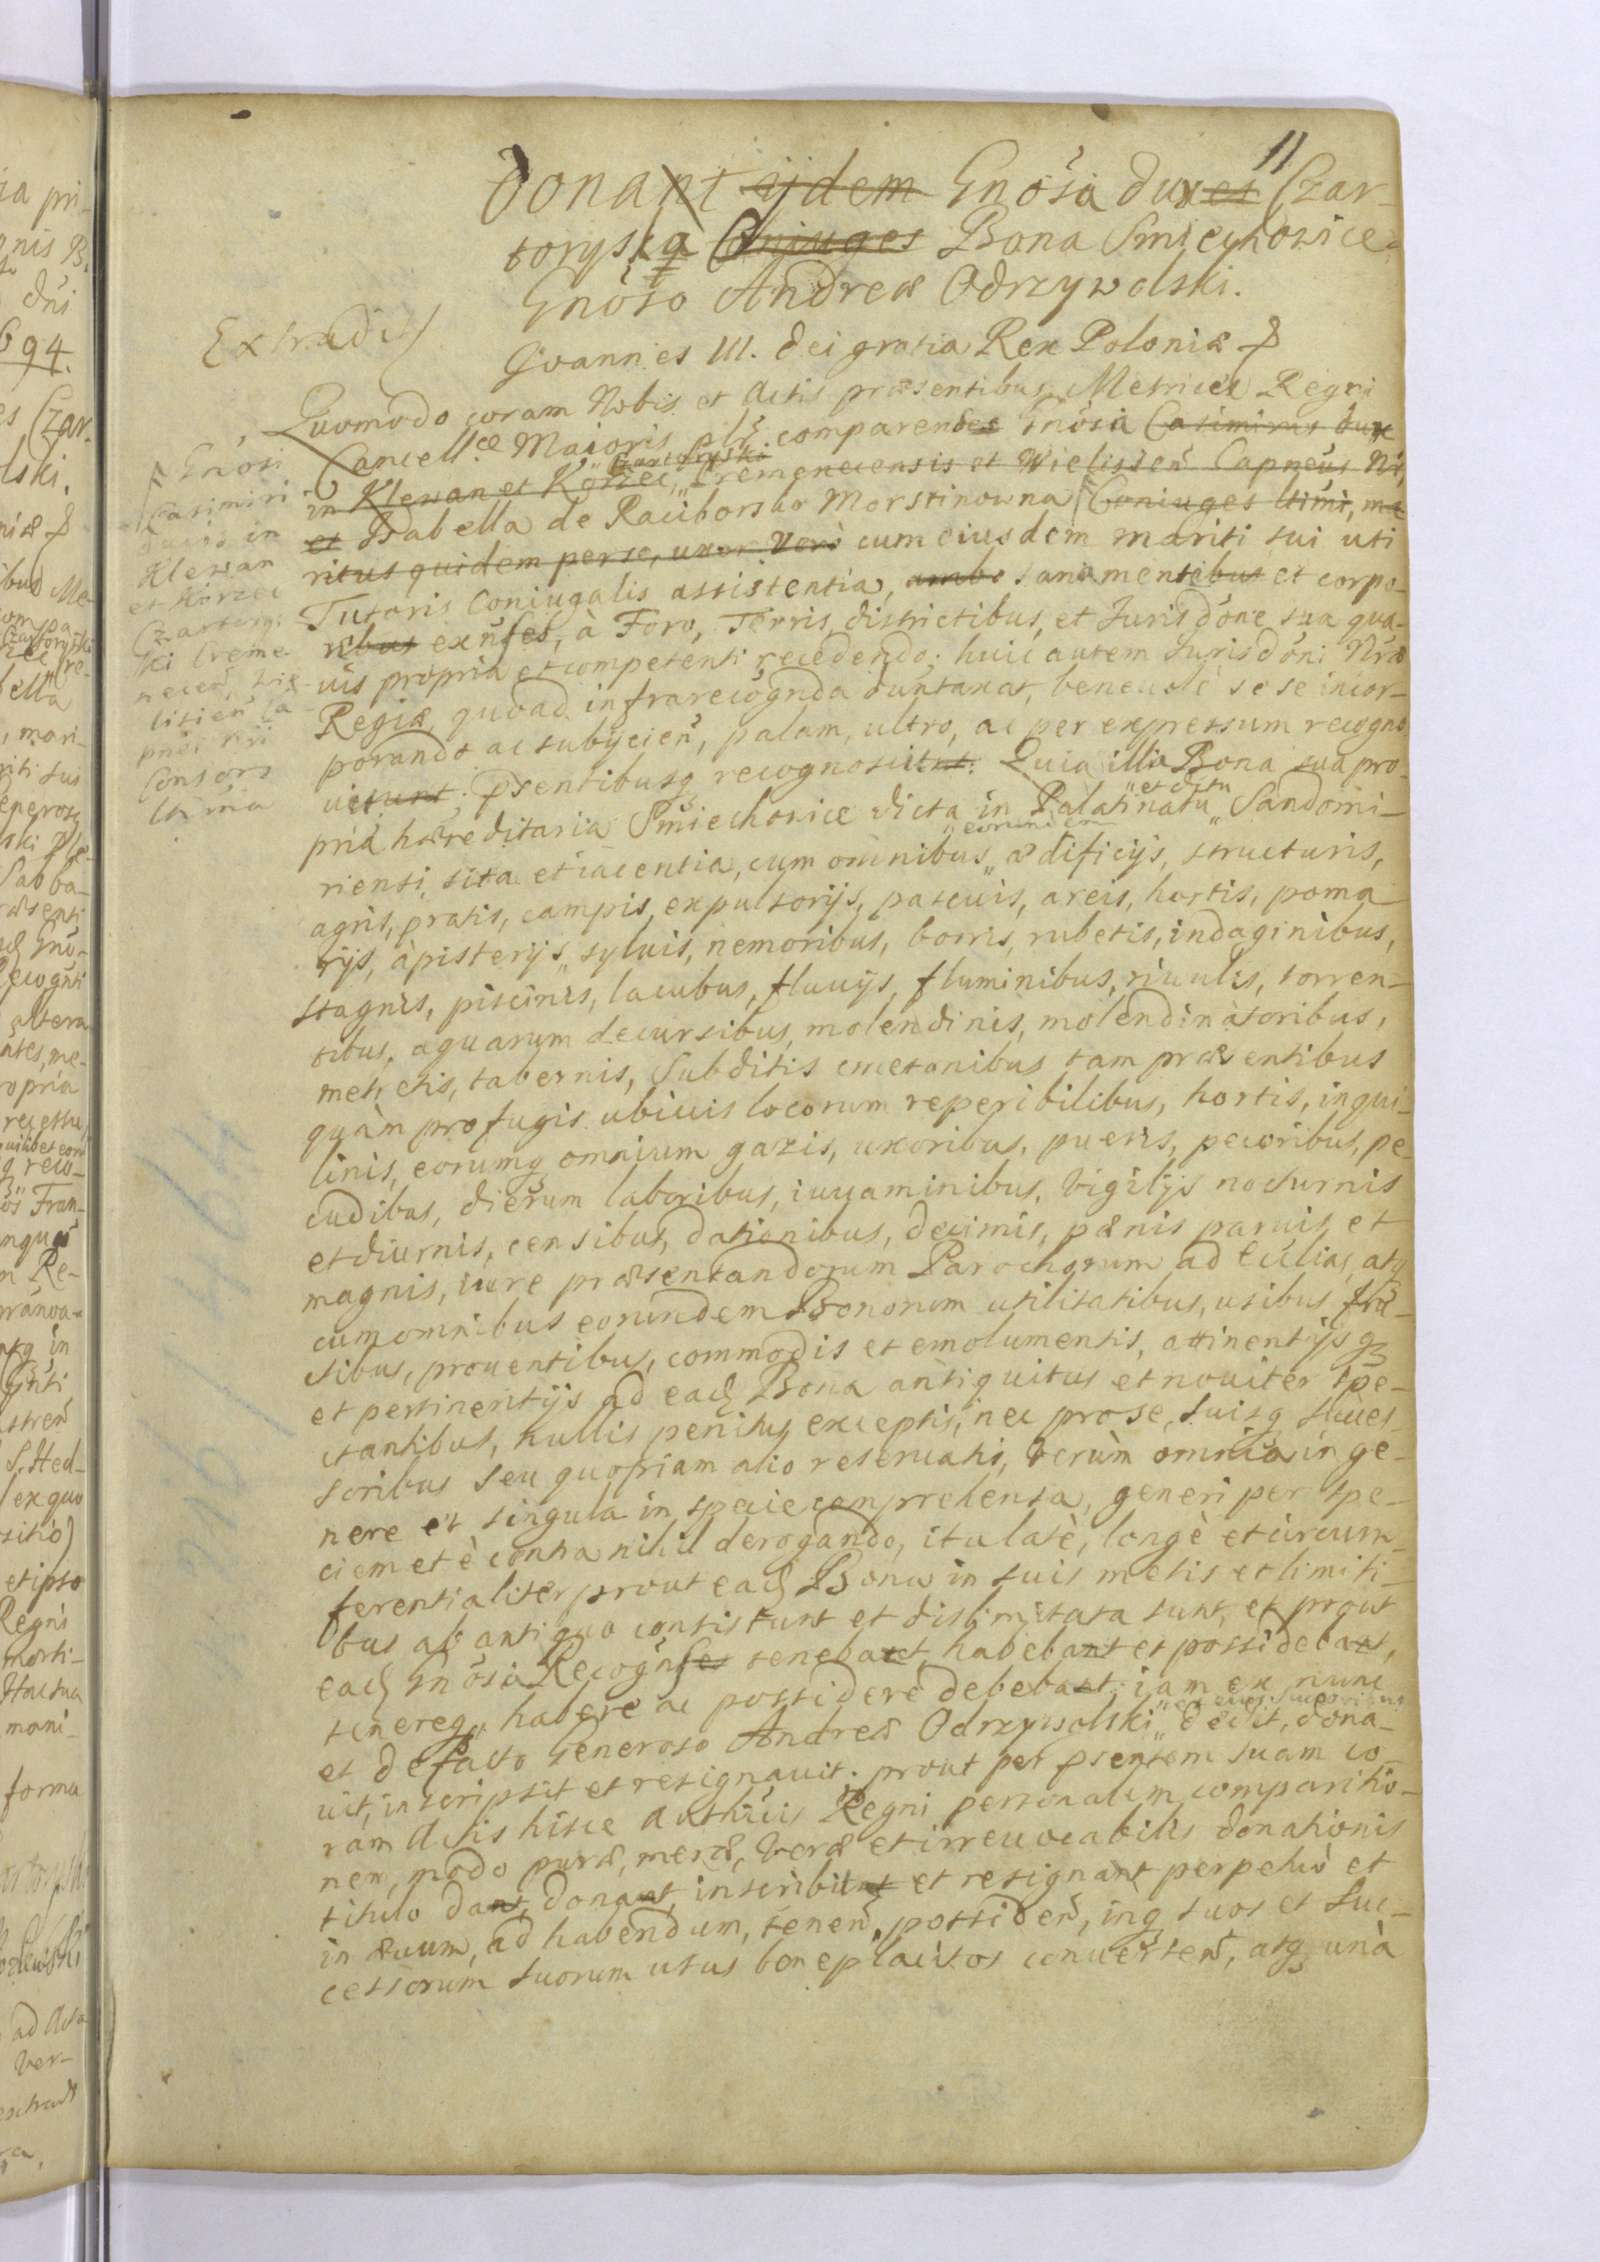 11
Donant ijdem Gnosa duxes Czar-
toryska Coniuges Bona Smiechowice
Gnoso Andreæ Odrzywolski.
Extradit
Joannes III. Dei gratia Rex Poloniæ
Quomodo coram Nobis et Actis præsentibus Metrices Regni
Cancell.æ Maioris plr comparendes Gnosa Casimirus Dux
in Klewan et Korzec, Czartoryski Cremenecensis et Wielissen Capneus Nr,
et Isabella de Raciborsko Morstinowna Coniuges ltimi, ma
ritus quidem per se, uxor vero cum eiusdem mariti sui uti
Tutoris coniugalis assistentia, ambo sana mentebus et corpo-
ribus exnses, à Foro, Terris, districtibus, et Jurisdone sua qua-
uis propria et competenti recedendo; huic autem Jurisdoni Nræ
Regiæ, quoad infrarecognda duntaxat, beneuole sese incor-
porando ac subijcien, palam, ultro, ac per expressum recogno
uit sunt; psentibusq recognoscitnt. Quia illa Bona sua pro-
pria hæreditaria Smiechowice dicta in Palatinatu et dttu Sandomi-
riensi sita et iacentia, cum omnibus eorundem ædificijs, structuris,
agris, pratis, campis, expultorijs, pascuis, areis, hortis, poma
rijs, apisterijs, syluis, nemoribus, borris, rubetis, indaginibus,
stagnis, piscinis, lacubus, fluuijs, fluminibus, riuulis, torren-
tibus, aquarum decursibus, molendinis, molendinatoribus,
metretis, tabernis, Subditis cmetonibus tam præsentibus
quàm profugis ubiuis locorum reperibilibus, hortis, inqui-
linis, eorumq omnium gazis, uxoribus, pueris, pecoribus, pe
cudibus, dierum laboribus, iuuaminibus, vigilijs nocturnis
et diurnis, censibus, dationibus, decimis, pænis paruis et
magnis, iure præsentandorum Parochorum ad Ecclias, atq
cum omnibus eorundem Bonorum utilitatibus, usibus fru-
ctibus, prouentibus, commodis et emolumentis, attinentijsq
et pertinentijs ad ead Bona antiquitus et nouiter spe-
ctantibus, nullis penitus exceptis, nec pro se, suisq succes-
soribus seu quopiam alio reseruatis, verùm omnia in ge-
nere et singula in specie comprehensa, generi per spe-
ciem et è contra nihil derogando, ita latè, longè et circum-
ferentialiter prout ead Bona in suis metis et limiti-
bus ab antiquo consistunt et dislimitata sunt, et prout
ead Gnosa Recognses tenebant, habebant et possidebant,
tenereq, habere ac possidere debebant; iam ex nunc
et de facto Generoso Andreæ Odrzywolski et eius successoribus dedit, dona-
uit, inscripsit et resignauit. prout per psentem suam co-
ram Actis hisce authicis Regni personalem comparitio-
nem, modo puræ, meræ, veræ et irreuocabilis donationis
titulo dant, donant, inscribitnt et resignant perpetuò et
in æuum, ad habendum, tenen, possiden, inq suos et suc-
cessorum suorum usus beneplacitos conuerten, atq unà
Gnosi
Casimiri
Ducis in
Klewan
et Korzec
Czartorys
ki Creme
necen, Wie
lisien Ca
pnei Nri
Consors
ltima